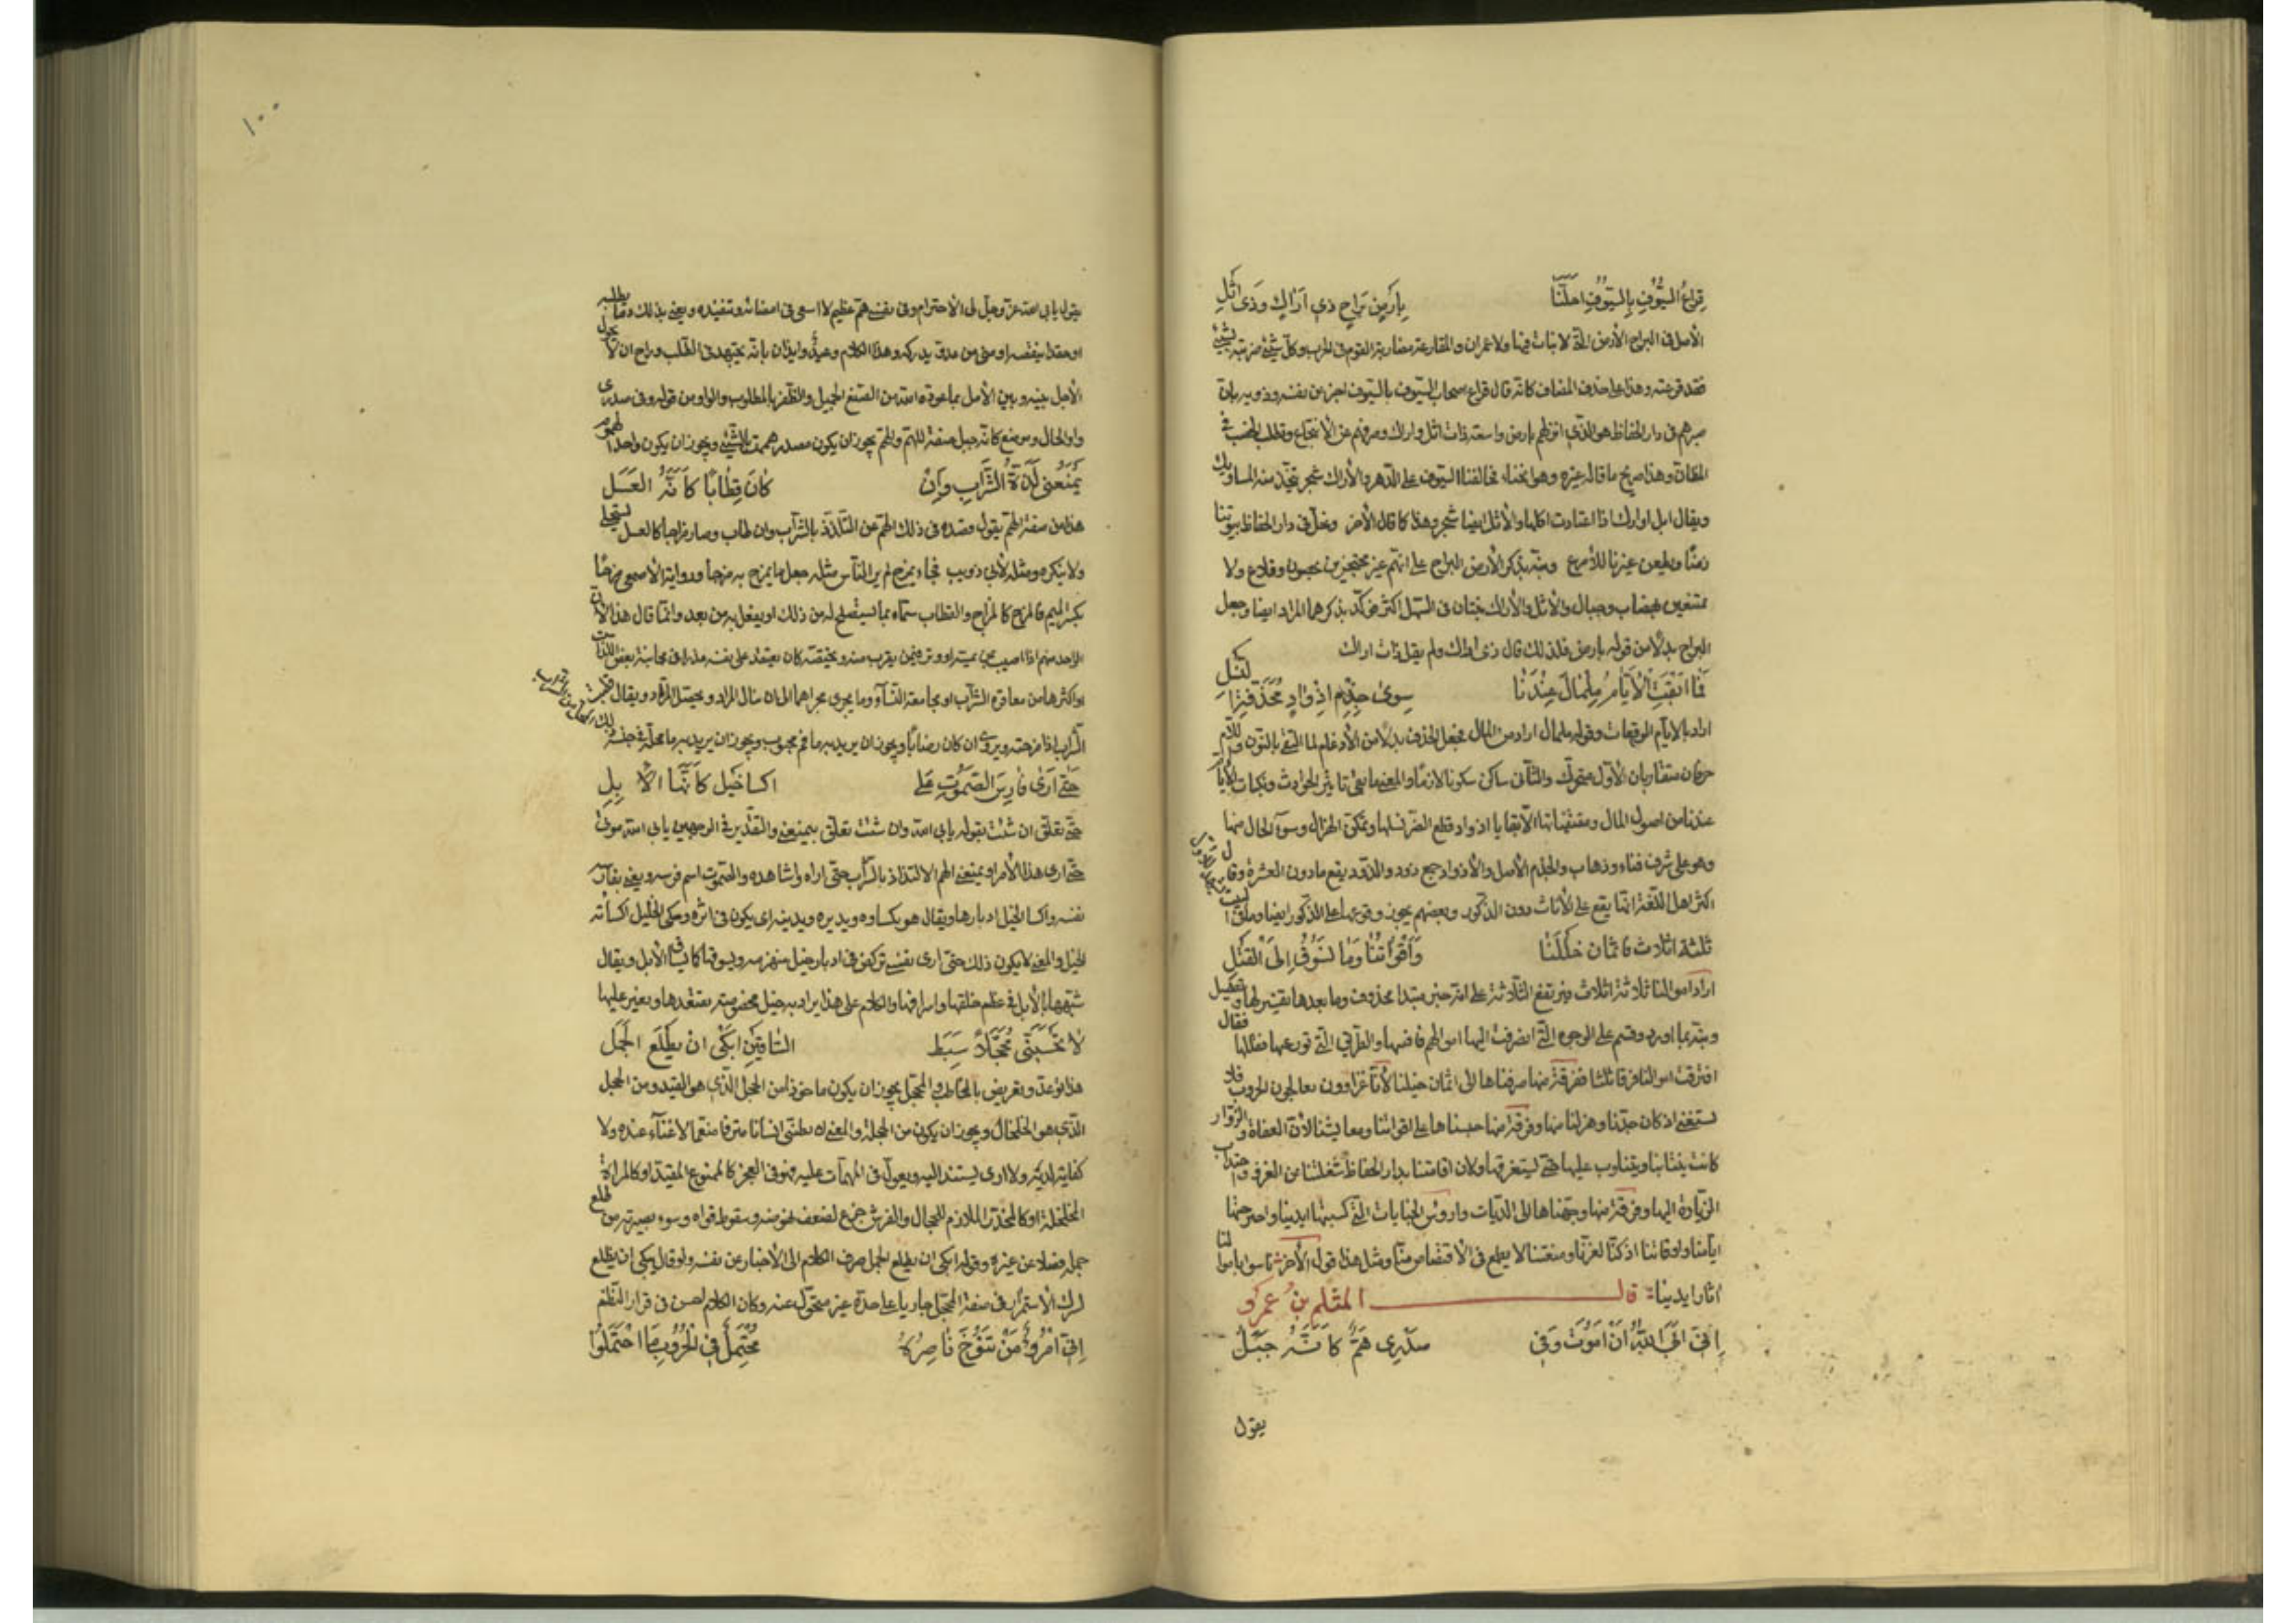 قِراعُ السُّيُوفِ بِالسُّيُوفِ احَلَّنَا بِارضٍ بَراحٍ ذي اَراكٍ وَذي اثلِ
الاصل في البراح الارض التي لا نبات فيها ولا عمران والمقارعة مضاربة القوم في الحرب وكل شيئ ضربته بشيئ
فقد قرعته وهذا على حذف المضاف كانه قال قراع اصحاب السيوف بالسيوف اخبر عن نفسه وذويه بان
صبرهم في دار الحفاظ هو الذي انزلهم بارض واسعة ذات اثل واراك وصرفهم عن الانتجاع وطلب الخصب في
المظان وهذا صريح ما قاله غيره وهو انخنا فحالفنا السيوف على الدهر والاراك شجر يتخذ منه المساويك
ويقال ابل اوارك اذا اعتادت اكلها والاثل ايضا شجر وهذا كما قال الاخر ونحل في دار الحفاظ بيوتنا
زمنا ويظعن غيرنا للامرع ونبه بذكر الارض البراح على انهم غير محتجزين بحصون وقلاع ولا
ممتنعين بهضاب وجبال والاثل والاراك ينبتان في السهل اكثر فوكد بذكرهما المراد ايضا وجعل
البراح بدلا من قوله بارض فلذلك قال ذي اراك ولم يقل ذات اراك
فَما ابْقَتِ الْاَيّامُ مِلْمالِ عِنْدَنَا سِوى جِذْمِ اذْوادٍ مُحَذَّفَةِ النَّسْلِ
اراد بالايام الوقعات وقوله ملمال اراد من المال فجعل الحذف بدلا من الادغام لما التقى بالنون واللام
حرفان متقاربان الاول متحرك والثاني ساكن سكونا لازما والمعنى ما بقى تاثير الحوادث ونكبات الايام
عندنا من اصول المال ومقتنياتها الا بقايا اذواد قطع الضر نسلها وتمكن الهزال وسوء الحال منها
وهو على شرف فناء وذهاب والجذم الاصل والاذواد جمع ذود والذود يقع ما دون العشرة وقال
اكثر اهل اللغة انما يقع على الاناث دون الذكور وبعضهم يجوز وقوعها على الذكور ايضا
ثلثة اثلاث فاثمان خَيْلَنَا وَاَقْواتُنَا وَمَا نَسُوقُ اِلى الْقَتْلِ
اراد اموالنا ثلاثة اثلاث فيرتفع الثلاثة على انه خبر مبتدا محذوف وما بعدها تفسير لها وتفصيل
ونبه بما اورده وقسم على الوجوه التي انصرفت اليها اموالهم فاضها والطرق التي توزعها فقال
افترقت اموالنا فرقا ثلثا ففرقة منها صرفناها الى اثمان خيلنا لانا غزاوون معالجون الحروب فلا
نستغني اذ كان جدنا وهزلنا منها وفرقة منها حبسناها على اقواتنا ومعايشنا لان العفاة والزوار
كانت ينتابنا ويتناوب عليها حتى ليستغرقها ولان اقامتنا بدار الحفاظ شغلتنا عن الغزو واجتذاب
الزيادة اليها وفرقة منها وجهناها الى الديات واروش الجنايات التي كسبتها ايدينا واجترحتها
ايامنا واوقاتنا اذ كنا لعزنا ومنعتنا لا يطمع في الاقتصاص منا ومثل هذا قول الاخر ناسوا باموالنا
اثار ايدينا قال المثلم بن عمرو
اِنّي اَبَى اللهُ اَنْ اَمُوتَ وَفي صَدْرِي هَمٌّ كَاَنَّهُ جَبَلُ
يقول
١٠٠
يقول يابى الله عز وجل لى الاحترام وفي نفسي هم عظيم لا اسعى في امضائه وتنفيذه ويعني بذلك دما يطلبه
او حقدا ينقضه او منى من عدو يدركه وهذا الكلام وعيد وايذان بانه يجتهد في الطلب وراج ان لا يحول
الاجل بينه وبين الامل بما عوده الله من الصنع الجميل والظفر بالمطلوب والواو من قوله وفي صدري
واو الحال وموضع كانه جبل صفة للهم والهم يجوز ان يكون مصدر هممت بالشيئ ويجوز ان يكون واحد الهموم
يَمْنَعُنى لَذَّةَ الشَّرابِ وَاِنْ كانَ قِطَابًا كَاَنَّهُ العَسَل
هذا من صفة الهم يقول وقصده في ذلك الهم عن التلذذ بالشراب وان طاب وصار مزاجها كالعسل يستحلى
ولا ينكره ومثله لابي ذويب فجاء بمزج لم ير الناس مثله جعل ما يمزج به مزجا ورواية الاصمعي مزجًا
بكسر الميم فالمزج كالمزاج والقطاب سماه بما ليستصلح له من ذلك او يفعل به من بعد وانما قال هذا لان
الواحد منهم اذا اصيب بحميمه او وتر فيمن يقرب منه ويختصه كان يعقد على نفسه نذرا في مجانبة بعض اللذات
او اكثرها من معاقرة الشراب او مجامعة النساء وما يجرى مجراهما الى ان ينال المراد ويحصل المرتاد ويقال قطبت
الشراب اذا مزجته ويروى ان كان رضابا ويجوز ان يريد به ما فم محبوب ويجوز ان يريد به ما محله في جنسه
حَتّى اَرى فارِسَ الصَّمُوتِ عَلى اكساءِ خَيْل كَاَنَّهَا الاِبِلِ
حتى تعلق ان شئت بقوله يابى الله وان شئت تعلق بيمنعني والتقدير في الوجهين يابى الله موتى
حتى ارى هذا الامر او يمنعني الهم الالتذاذ بالشراب حتى اراه واشاهده والصموت اسم فرسه ويعني بفارسه
نفسه واكسا الخيل ادبارها ويقال هو يكساوه ويدبره ويدينه اى يكون في اثره وحكى الخليل اكساته
الخيل والمعنى لا يكون ذلك حتى ارى نفسي تركض في ادبار خيل منهزمة ويسوقها كما يساق الابل ويقال
شبهها بالابل في عظم خلقها واشرافها والكلام على هذا يراد به خيل مخصوصة يقتعدها ويغير عليها
لا تَحْسَبَنّى مُحَجَّلًا سَبِطَ السّاقَيْنِ اَبْكى اَنْ يَظْلَعَ الْجَمَلُ
هذا توعد وتعريض بالمخاطب والمحجل يجوز ان يكون ماخوذا من الحجل الذي هو القيد ومن الحجل
الذي هو الخلخال ويجوز ان يكون من الحجلة والمعنى لا تظننى انسانا مترفا منعما لا غناء عنده ولا
كفاية لديه ولا اوى ليستند اليه ويعول في المهمات عليه فهو في العجز كالممنوع المقيد او كالمراة
المخلخلة او كالمخدرة الملازم للحجال والفرش جزع لضعف نهوضه وسقوط قواه وسوء بصيرته من ظلع
جمله فضلا عن غيره وقوله ابكى ان يظلع الجمل صرف الكلام الى الاخبار عن نفسه ولو قال يبكى ان يظلع
لترك الاستمرار في صفة المحجل جاريا على حده غير متحول عنه وكان الكلام احسن في قرار النظم
اِنّي امْرُؤٌ مَنْ تَنُوخَ ناصِرُهُ مُحْتَمِلٌ في الْحُرُوبِ مَا احْتَمَلُوا